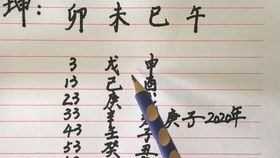 坤：卯 未 巳 午
3 戊 申
13 己 酉
23 庚
33 辛 庚子2020年
43 壬 子
53 癸 丑